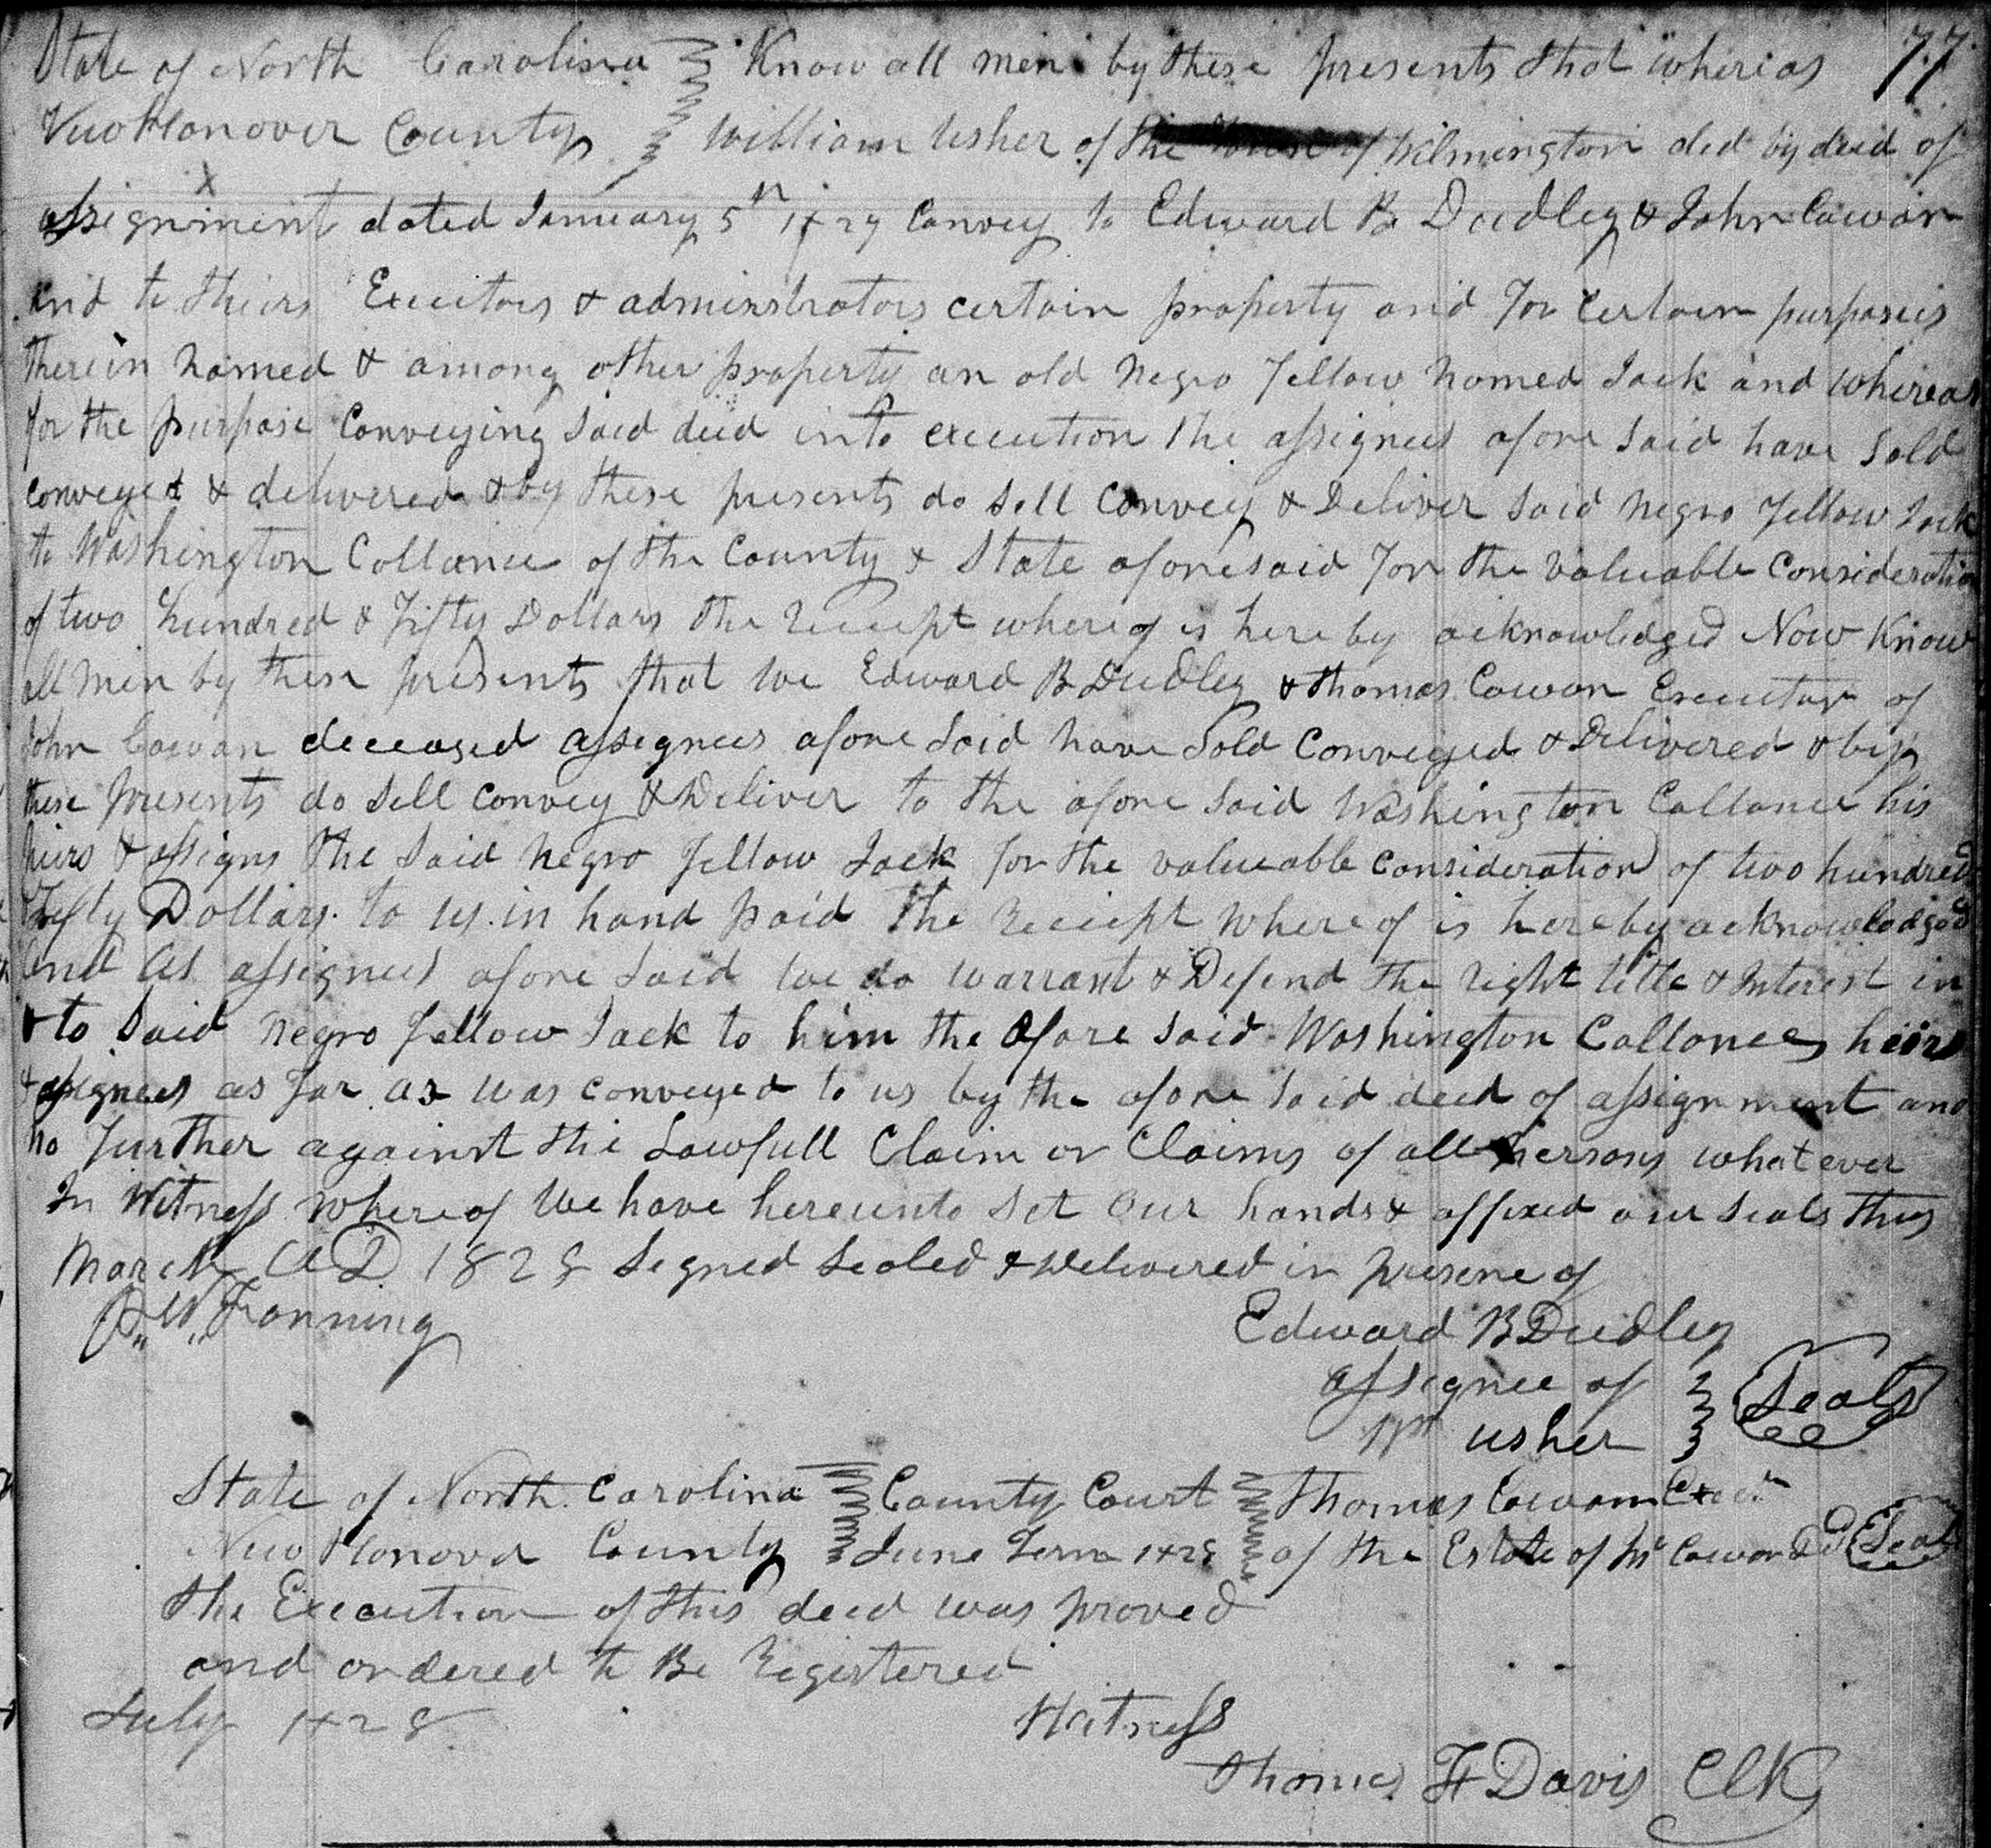 State of North Carolina Know all men by these presents that wherias 77
New Hanover County William Usher of the Town of Wilmington did by deed of
assignment dated January 5th 1827 Convey to Edward B Dudley & John Cowan
and to theirs Executors & adminnstrators certain property and for certain purposes
therein named & among other property an old negro fellow named Jack and whereas
for the purpose Conveying said deed into execution the assignees afore said have sold
conveyed & delivered & by these presents do sell convey & Deliver said negro fellow Jack
to Washington Callance of the County & State aforesaid for the valuable Consideration
of two hundred & Fifty Dollars the receipt whereof is here by acknowledged Now Know
all men by these presents that we Edward B Dudley & Thomas Cowan Executor of
John Cowan deceased assignees afore said have Sold Conveyed & Delivered & by
these presents do sell convey & Deliver to the afore said Washington Callance his
heirs & assigns the said negro fellow Jack for the valueable consideration of two hundred
fifty Dollars to us in hand paid the receipt where of is hereby acknowledged
and as assignees afore said we do warrant & Defend the right title & Interest in
& to said negro fellow Jack to him the afore said Washington Callances heirs
& assignees as far as was conveyed to us by the afore said deed of assignment and
no further against the Lawfull Claim or Claims of all persons what ever
In Witness whereof we have hereunto set our hands & affixed our seals this
March AD 1828 Signed Sealed & Delivered in presene of
P. W. Fanning Edward B Dudley
assignee of Seals
Wm Usher
State of North Carolina County Court Thomas Cowan Exer
New Hanover County June Term 1828 of the Estate of Cowan Seal
the Execution of this deed was proved
and ordered to Be registered
July 1828 Witness
Thomas F Davis Clk